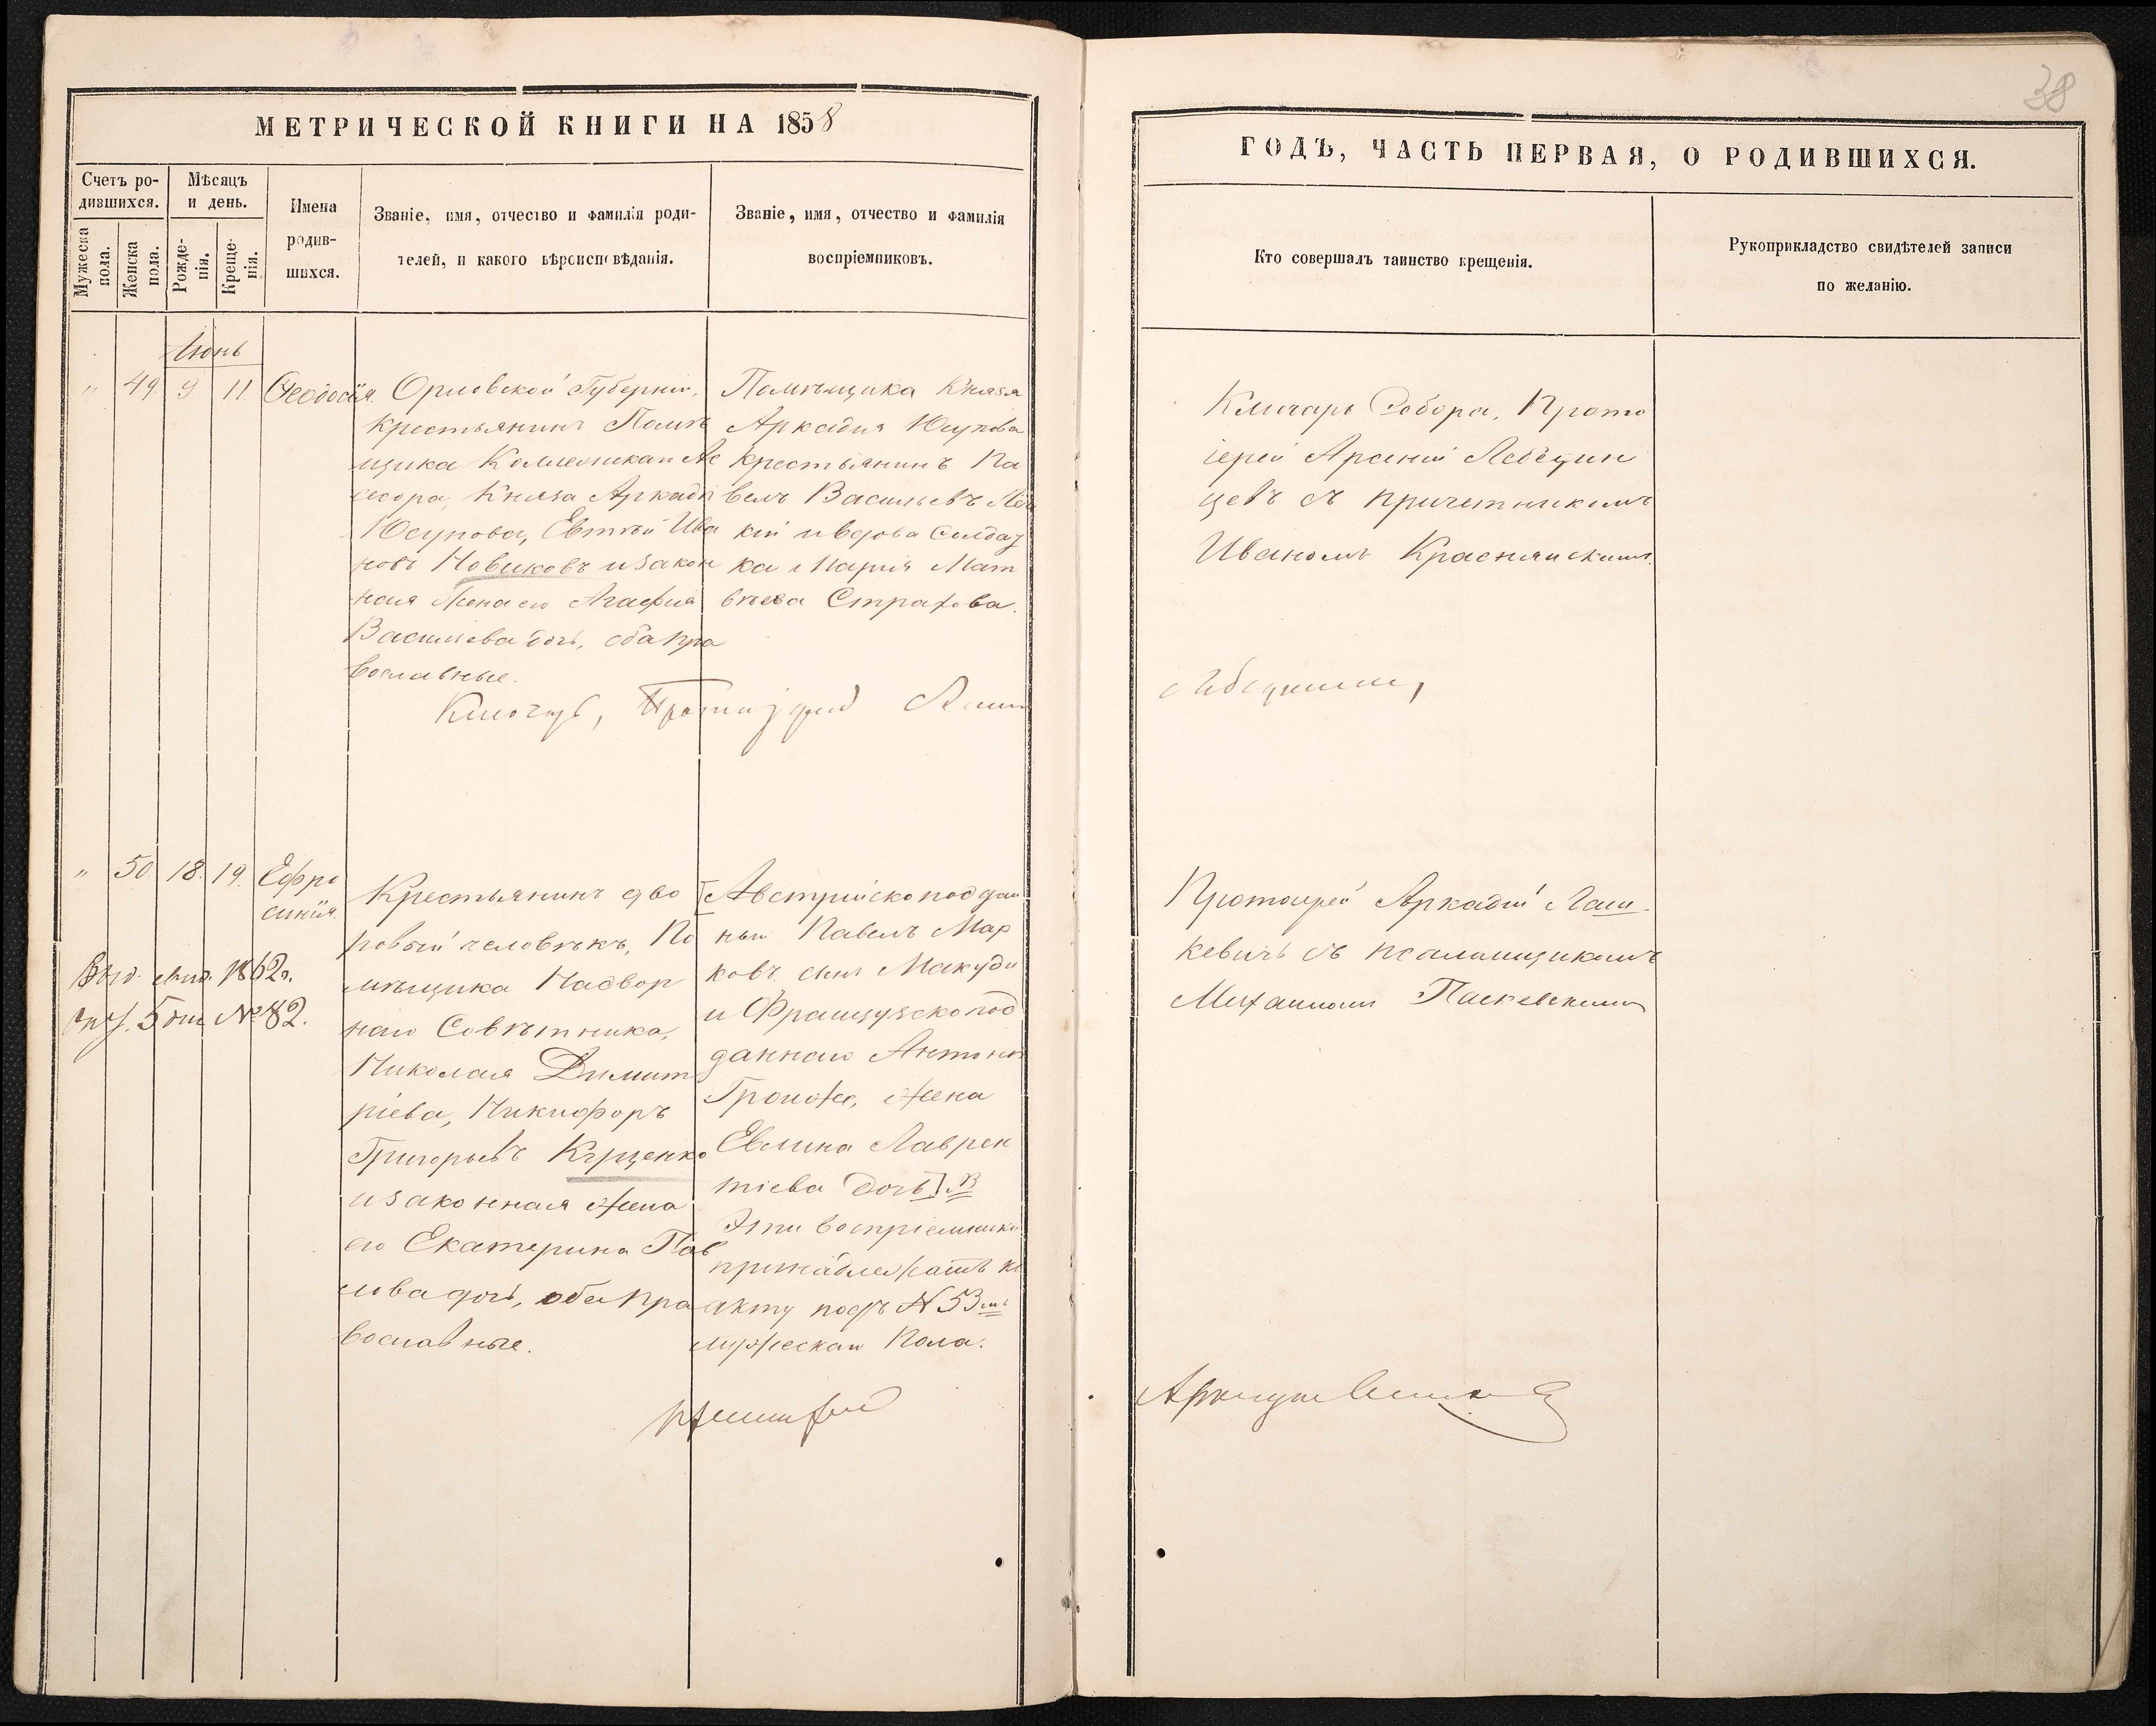 38
МЕТРИЧЕСКОЙ КНИГИ НА 1858
ГОДЪ, ЧАСТЬ ПЕРВАЯ, О РОДИВШИХСЯ.
Счетъ ро-
дившихся.
Мужеска
пола.
Женска
пола.
Мѣсяцъ
и день.
Рожде-
нія.
Креще-
нія.
Имена
родив-
шихся.
Званіе, имя, отчество и фамилія роди-
телей, и какого вѣроисповѣданія.
Званіе, имя, отчество и фамилія
воспріемниковъ.
Кто совершалъ таинство крещенія.
Рукоприкладство свидѣтелей записи
по желанію.
Іюнь
" 49 9 11. Ѳеодосія.
Орловской Губерніи,
крестьянинъ Помѣ
щика Коллежскаго Ас
сесора, Князя Аркадія
Юсупова, Евтѣй Ива
новъ Новиковъ и закон
ная жена его Агафія
Васильева дочь, оба пра
вославные.
Помѣщика Князя
Аркадия Юсупова
крестьянинъ Па
велъ Васильевъ
кій и вдова Солдат
ка Марія Мат
вѣева Страхова.
Ключарь Собора, Прото
іерей Арсеній Лебедин
цевъ съ причетникомъ
Иваномъ Краснянскимъ.
Ключарь, Протоіерей
" 50. 18. 19. Ефро
синія.
1862г.
5 дня № 82.
Крестьянинъ дво
ровый человѣкъ, По
мѣщика Надвор
наго Совѣтника,
Николая Димит
ріева, Никифоръ
Григорьевъ Куценко
и законная жена
его Екатерина Пав
лова дочь, оба пра
вославные.
[Австрійскоподдан
ный Павелъ Мар
ковъ сынъ Макуди
и Французскопод
даннаго Антонія
жена
Евлина Лаврен
тіева дочь].
Эти воспріемники
принадлежатъ къ
акту подъ № 53мъ
мужескаго пола.
Протоіерей Аркадій Лаш-
кевичъ съ псаломщикомъ
Михаиломъ Паскевскимъ